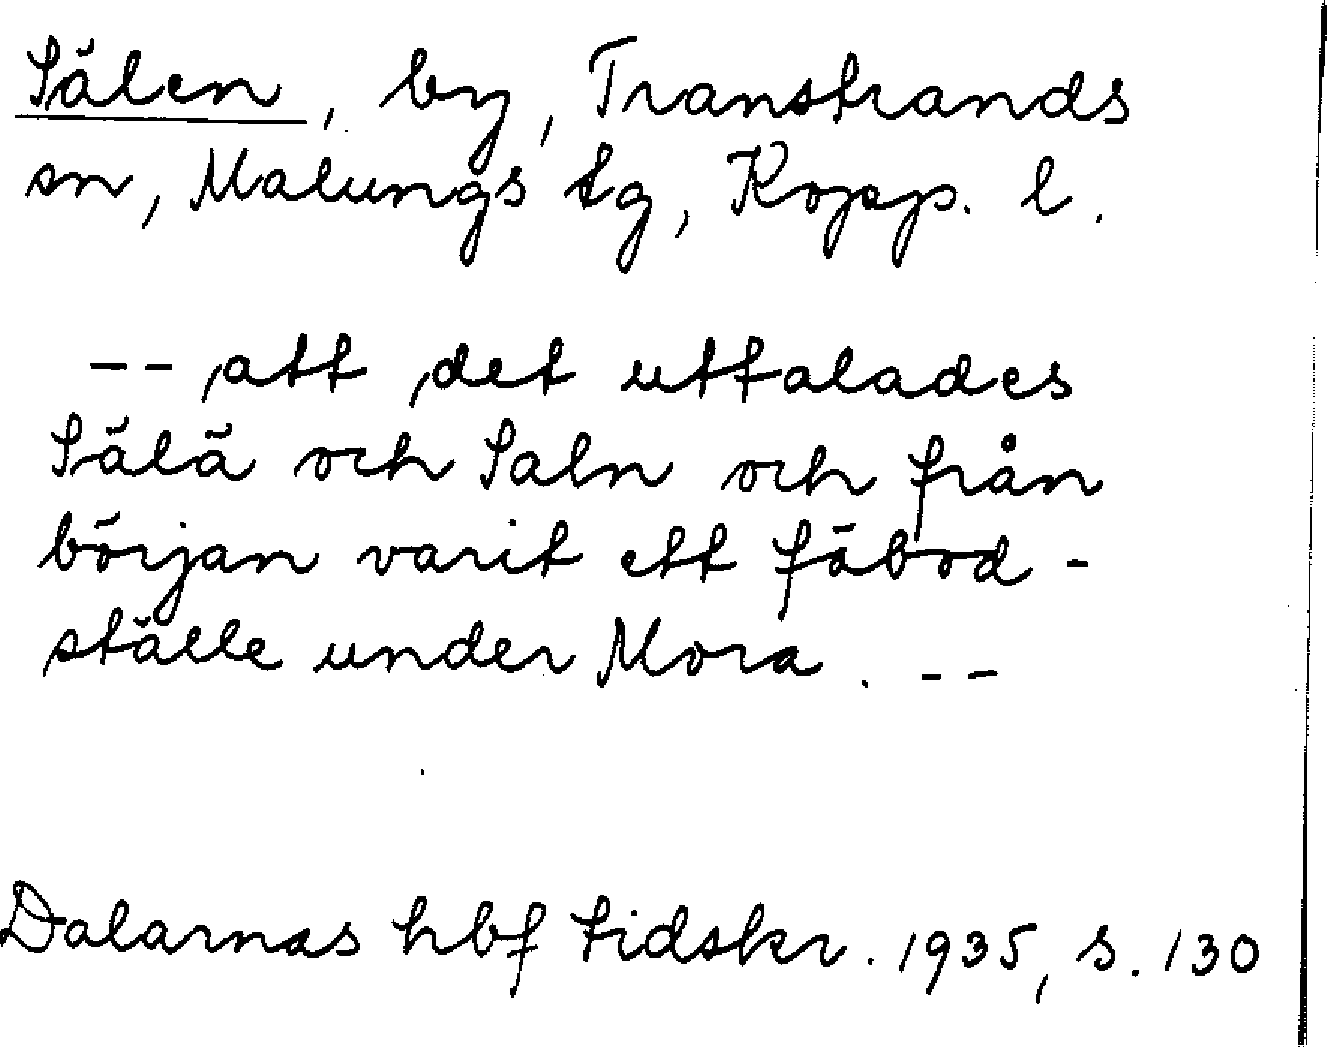 Sälen, by, Transtrands
sn, Malungs tg, Kopp. l.
-- att det uttalades
Sälä och Saln och från
början varit ett fäbod-
ställe under Mora. --
Dalarnas hbf tidskr. 1935, s. 130